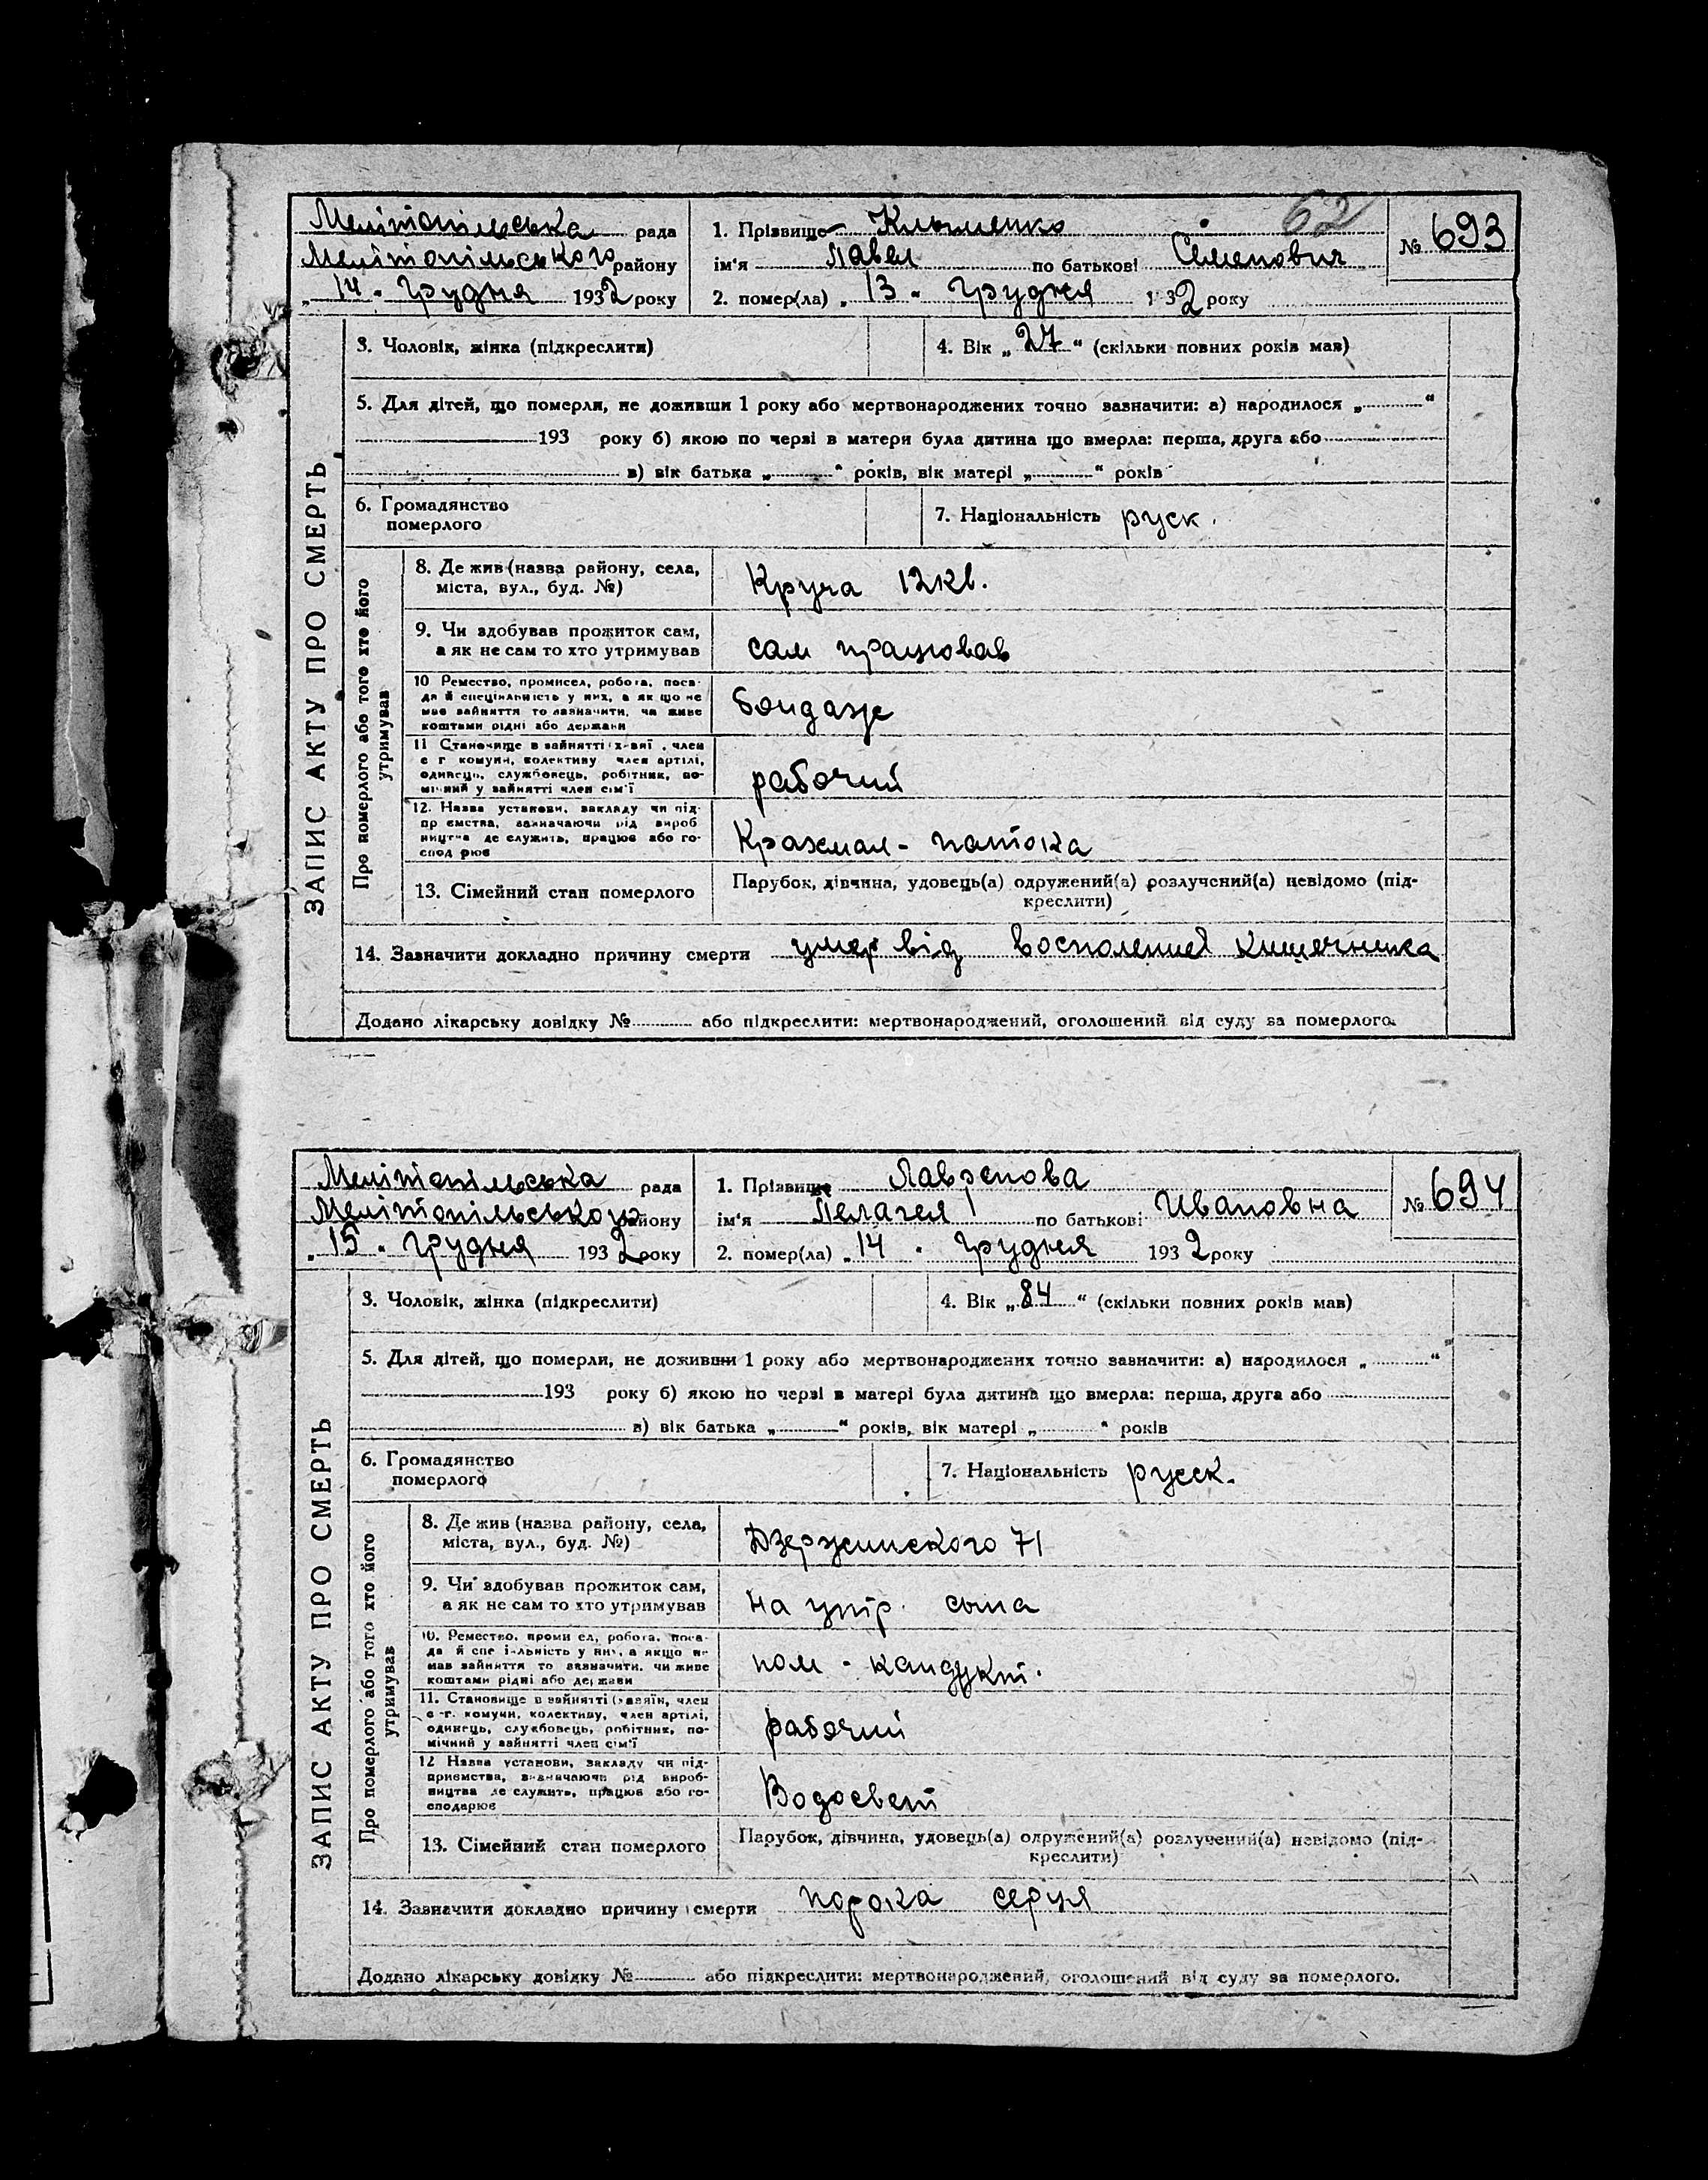 62
Мелітопільська рада
Мелітопільського району
„ 14 " грудня 1932 року
1. Прізвище Клыменко
ім'я Павел по батькові Семенович
2. помер(ла) „ 13 " грудня 1932 року
№ 693
ЗАПИС АКТУ ПРО СМЕРТЬ
3. Чоловік, жінка (підкреслити)
4. Вік „ 27 " (скільки повних років мав)
5. Для дітей, що померли, не доживши 1 року або мертвонароджених точно зазначити: а) народилося „ "
193 року б) якою по черзі в матери була дитина що вмерла: перша, друга або
в) вік батька „ " років, вік матері „ " років
6. Громадянство
померлого
7. Національність руск.
Про померлого або того хто його
утримував
8. Де жив (назва району, села,
міста, вул., буд. №)
Круча 12кв.
9. Чи здобував прожиток сам,
а як не сам то хто утримував
сам працював
10 Ремество, промисел, робота, поса-
да й спеціяльність у них, а як що не
мав зайняття то зазначити, чи живе
коштами рідні або держави
бондарь
11 Становище в зайнятті , член
с г комуни, колективу член артілі,
одинець, службовець, робітник, по-
мічний у зайнятті член сім'ї
рабочий
12. Назва установи, закладу чи під-
пр ємства, зазначаючи рід вироб
ництва де служить, працює або го-
спод рює
Крахмал - патока
13. Сімейний стан померлого
Парубок, дівчина, удовець(а) одружений(а) розлучений(а) невідомо (під-
креслити)
14. Зазначити докладно причину смерти умер від восполения кишечника
Додано лікарську довідку № або підкреслити: мертвонароджений, оголошений від суду за померлого.
Мелітопільська рада
Мелітопільського району
„ 15 " грудня 1932 року
1. Прізвище Лавренова
ім'я Пелагея по батькові Ивановна
2. помер(ла) „ 14 " грудня 1932 року
№ 694
ЗАПИС АКТУ ПРО СМЕРТЬ
3. Чоловік, жінка (підкреслити)
4. Вік „ 84 " (скільки повних років мав)
5. Для дітей, що померли, не доживши 1 року або мертвонароджених точно зазначити: а) народилося „ "
193 року б) якою по черзі в матері була дитина що вмерла: перша, друга або
в) вік батька „ " років, вік матері „ " років
6. Громадянство
померлого
7. Національність русск.
Про померлого або того хто його
утримував
8. Де жив (назва району, села,
міста, вул., буд. №)
Дзержинского 71
9. Чи здобував прожиток сам,
а як не сам то хто утримував
на утр. сына
10. Ремество, проми ел, робота, поса-
да й спе іяльність у них, а якщо не
мав зайняття то зазначити, чи живе
коштами рідні або держави
пом - кандукт.
11. Становище в зайнятті (хазяїн, член
с -г. комуни, колективу, член артілі,
одинець, службовець, робітник, по-
мічний у зайнятті член сім'ї
рабочий
12 Назва установи, закладу чи під-
приємства, зазначаючи рід вироб-
ництва де служить, працює або го-
сподарює
Водосвет
13. Сімейний стан померлого
Парубок, дівчина, удовець(а) одружений(а) розлучений(а) невідомо (під-
креслити)
14. Зазначити докладно причину смерти порока серця
Додано лікарську довідку № або підкреслити: мертвонароджений, оголошений від суду за померлого.